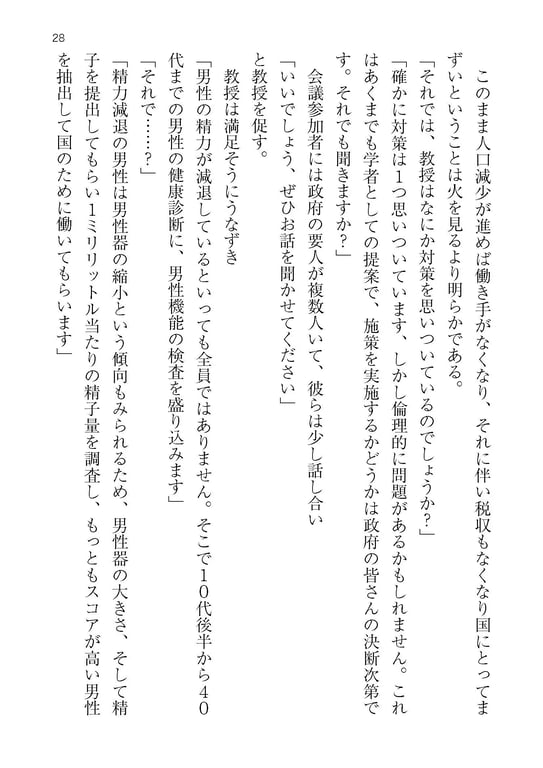 28
このまま人口減少が進めば働き手がなくなり、それに伴い税収もなくなり国にとってま
ずいということは火を見るより明らかである。
「それでは、教授はなにか対策を思いついているのでしょうか？」
「確かに対策は１つ思いついています、しかし倫理的に問題があるかもしれません。これ
はあくまでも学者としての提案で、施策を実施するかどうかは政府の皆さんの決断次第で
す。それでも聞きますか？」
会議参加者には政府の要人が複数人いて、彼らは少し話し合い
「いいでしょう、ぜひお話を聞かせてください」
と教授を促す。
教授は満足そうにうなずき
「男性の精力が減退しているといっても全員ではありません。そこで１０代後半から４０
代までの男性の健康診断に、男性機能の検査を盛り込みます」
「それで……？」
「精力減退の男性は男性器の縮小という傾向もみられるため、男性器の大きさ、そして精
子を提出してもらい１ミリリットル当たりの精子量を調査し、もっともスコアが高い男性
を抽出して国のために働いてもらいます」